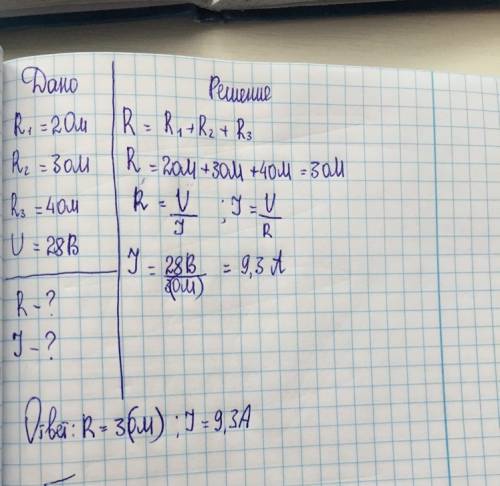 Дано
R₁ = 2Ом
R₂ = 3Ом
R₃ = 4Ом
U = 28В
R - ?
J - ?
Решение
R = R₁ + R₂ + R₃
R = 2Ом + 3Ом + 4Ом = 3Ом
R = U/J ; J = U/R
J = 28В/3(Ом) = 9,3 А
Ответ: R = 3(Ом) ; J = 9,3А